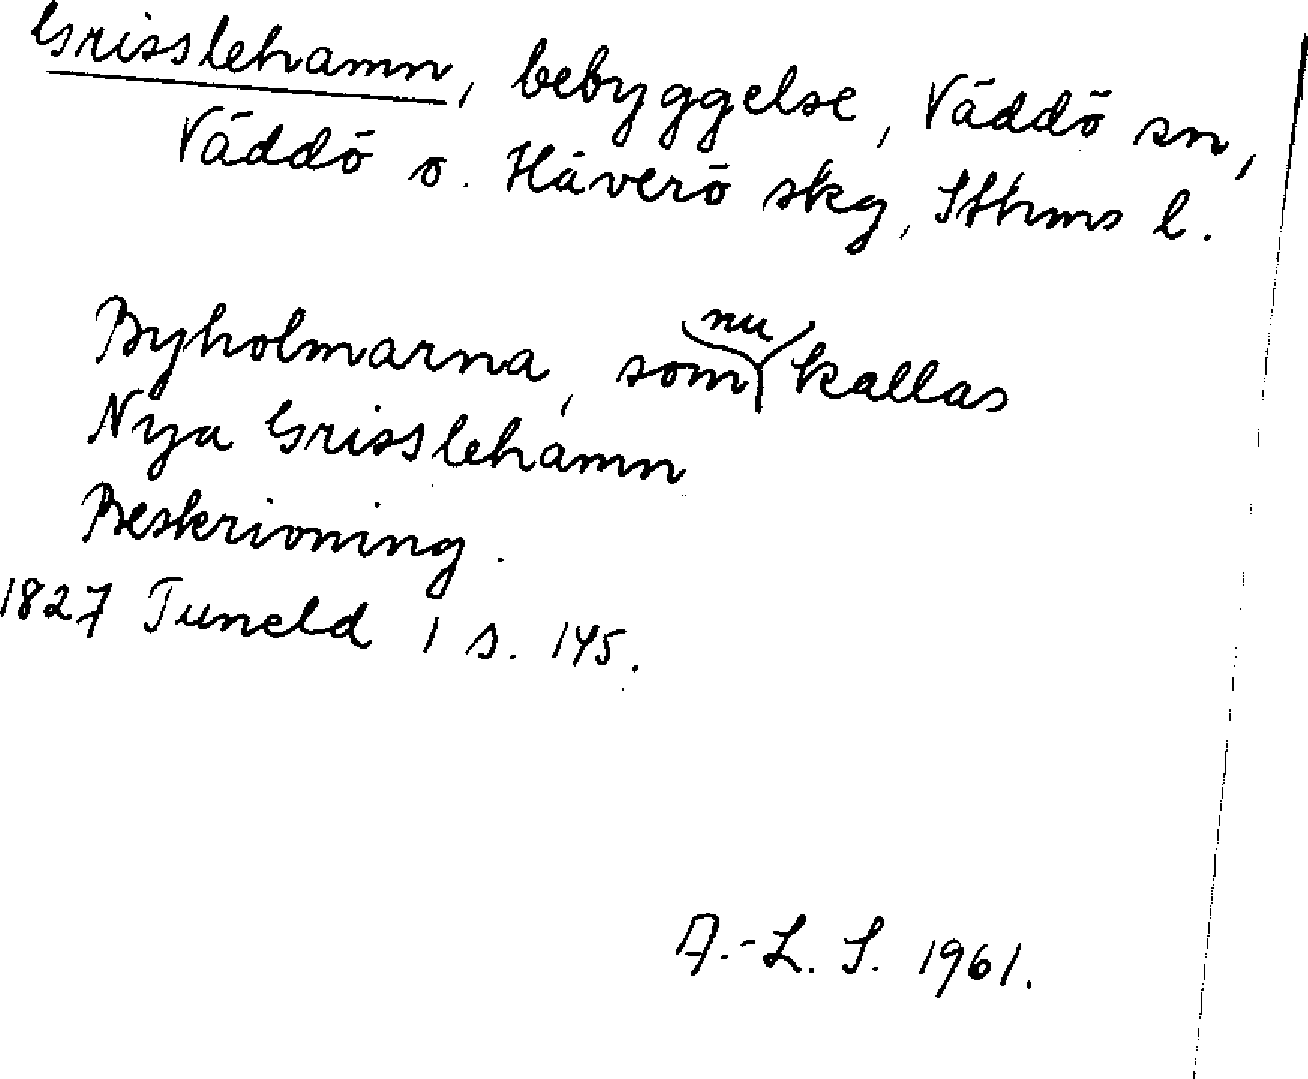 Grisslehamn, bebyggelse, Väddö sn,
Väddö o. Häverö skg, Sthms l.
Byholmarna, som nu kallas
Nya Grisslehamn
Beskrivning.
1827 Tuneld 1 s. 145.
A.-L. S. 1961.